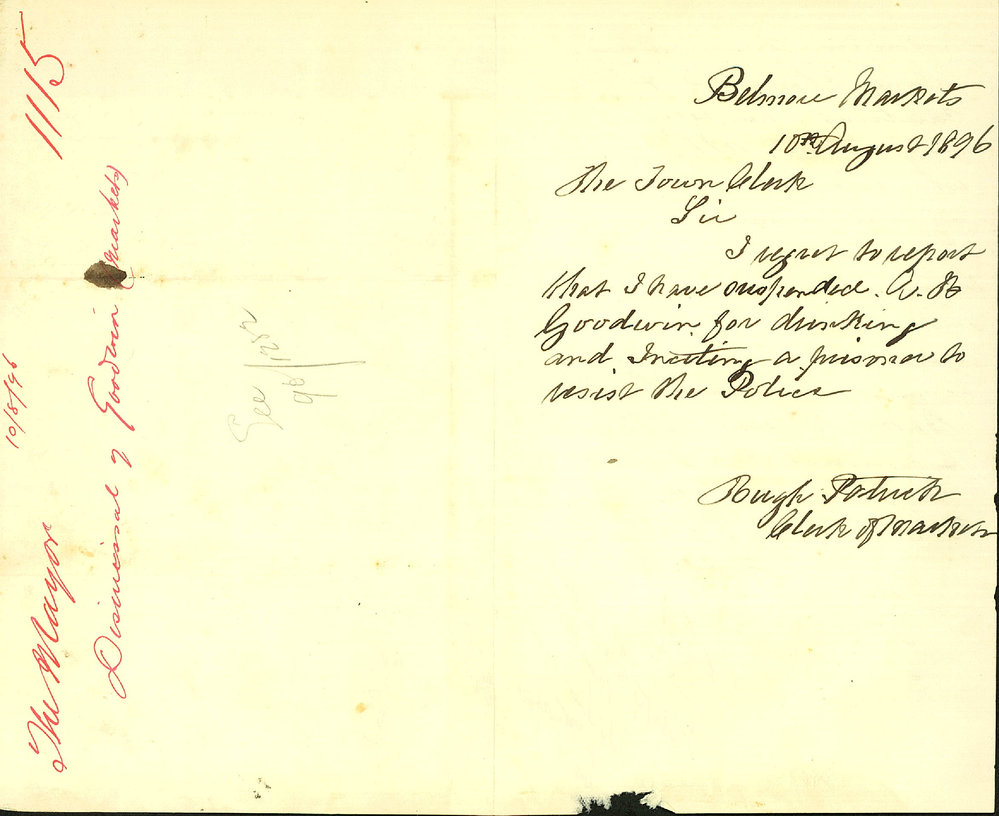 Belmore Markets
10th August 1896
The Town Clerk
Sir
I regret to report
that I have suspended. A. H
Goodwin. for drinking
and Inciting a prisoner to
resist the Police
Hugh Patrick
Clerk of Markets
1115
Dismissal of Goodwin (markets)
The Mayor
10/8/96
See
96/